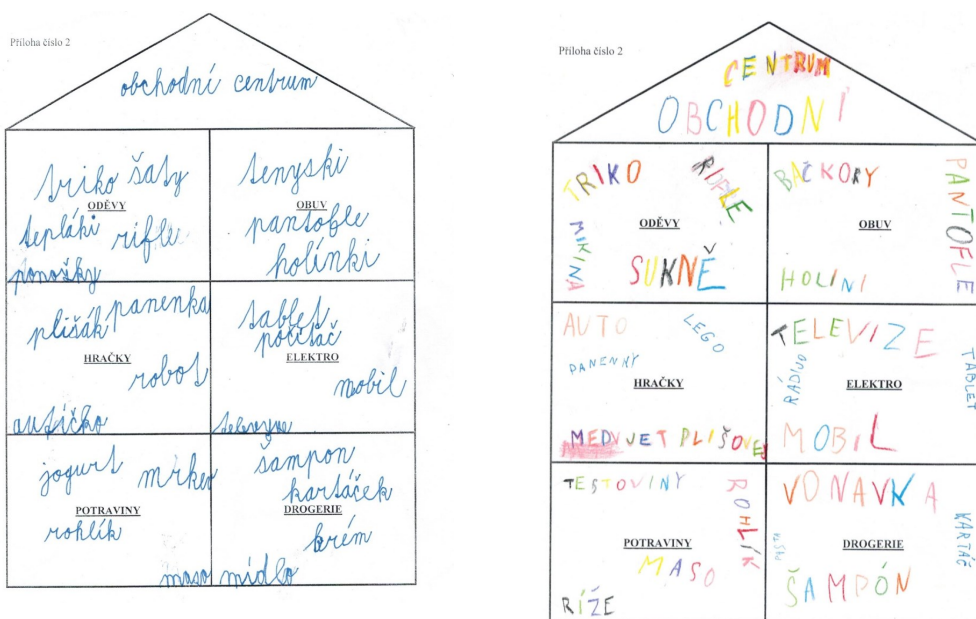 Příloha číslo 2
obchodní centrum
triko šaty
ODĚVY
tepláki rifle
ponožky
tenyski
OBUV
pantofle
holínki
plišák panenka
HRAČKY
robot
autíčko
tablet
počítač
ELEKTRO
mobil
televyze
jogurt mrkev
POTRAVINY
rohlík
maso
šampon
kartáček
DROGERIE
krém
mídlo
Příloha číslo 2
CENTRUM
OBCHODNÍ
TRIKO
RIFLE
ODĚVY
MIKINA
SUKNĚ
BAČKORY
PANTOFLE
OBUV
HOLINI
AUTO
LEGO
PANENKY
HRAČKY
MEDVJET PLIŠOVEJ
TELEVIZE
RÁDIJO
TABLET
ELEKTRO
MOBIL
TESTOVINY
ROHLÍK
POTRAVINY
MASO
RÍŽE
VONAVKA
KARTÁČ
DROGERIE
ŠAMPÓN